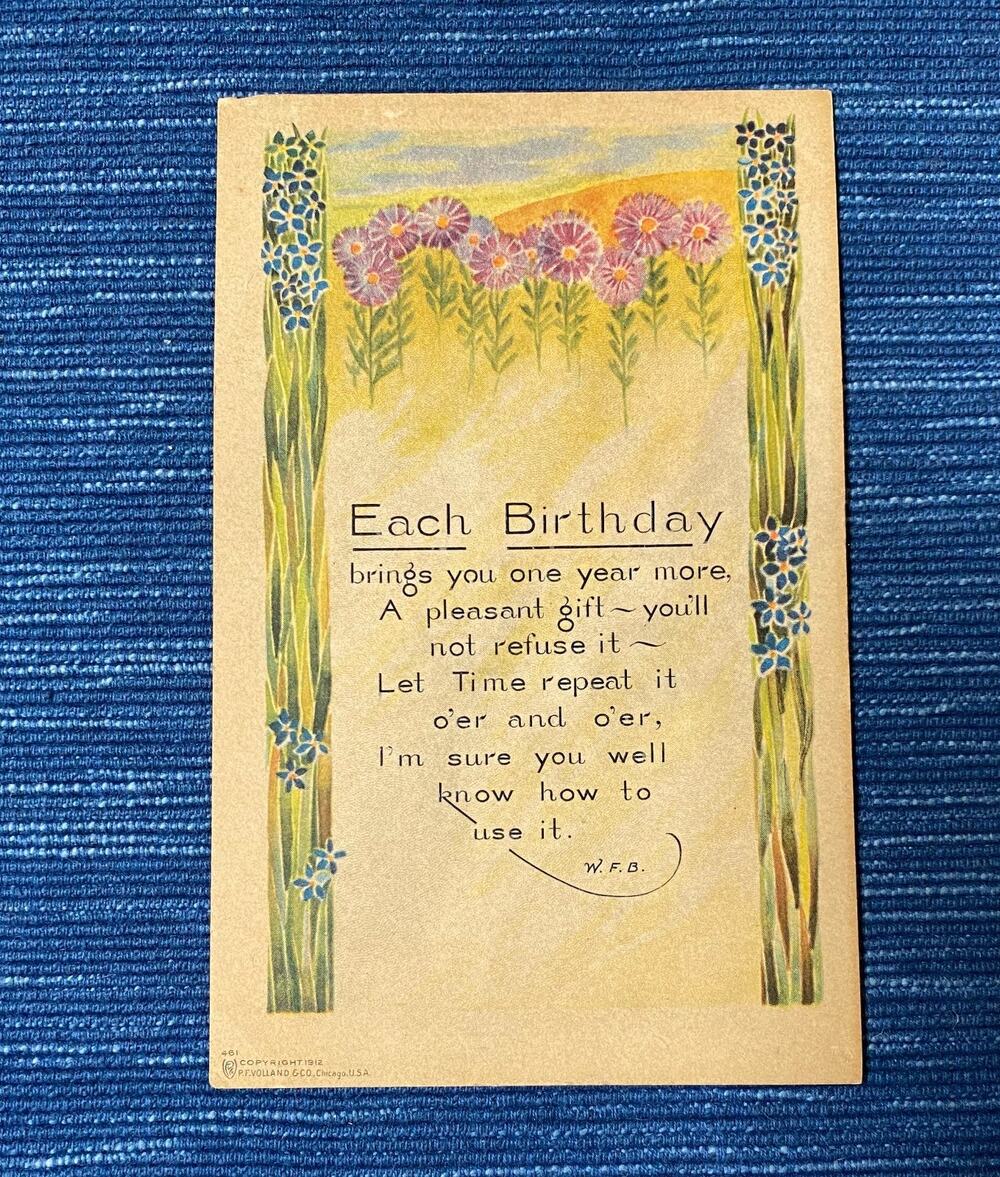 Each Birthday
brings you one year more,
A pleasant gift ~ you'll
not refuse it ~
Let Time repeat it
o'er and o'er,
I'm sure you well
know how to
use it.
W. F. B.
461
COPYRIGHT 1912
P.F. VOLLAND & CO. Chicago. U.S.A.